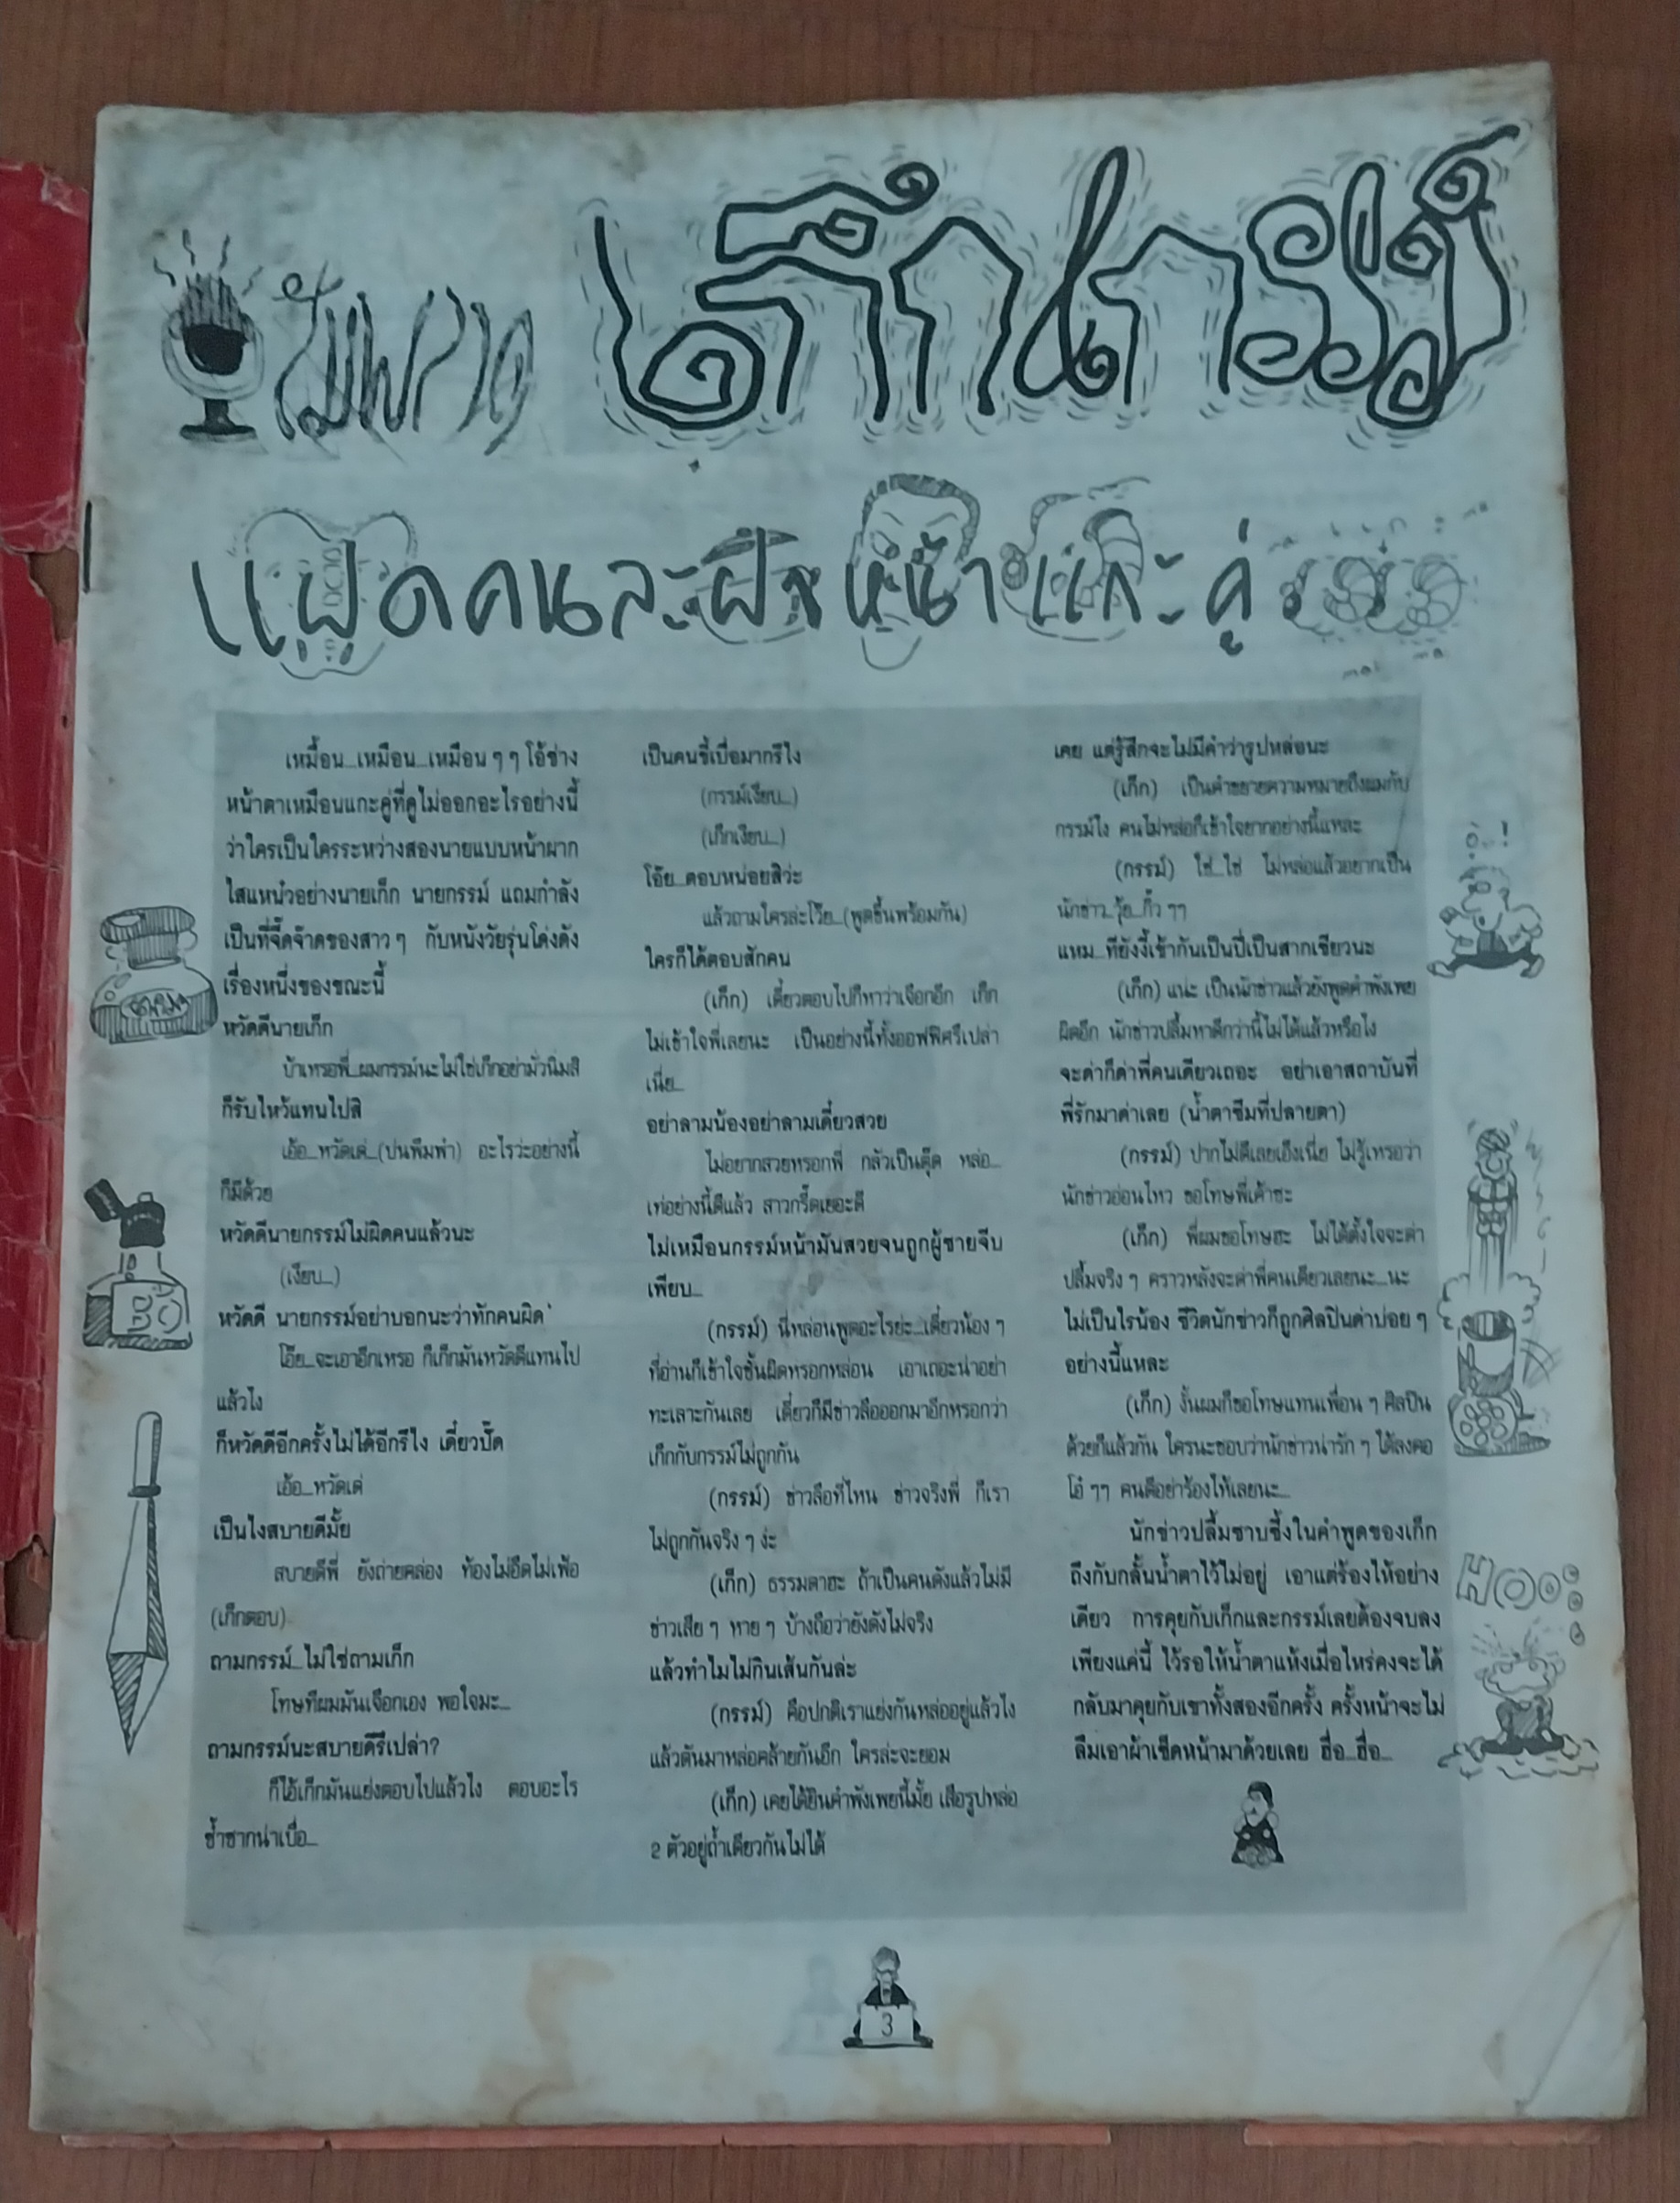 สัมภาษ
เก๊กกรรม์
แฝดคนละฝีหน้าแกะคู่
เหมือน...เหมือน...เหมือน ๆ ๆ โอ้ช่าง
หน้าตาเหมือนแกะคู่ที่ดูไม่ออกอะไรอย่างนี้
ว่าใครเป็นใครระหว่างสองนายแบบหน้าผาก
ใสแหน๋วอย่างนายเก็ก นายกรรม์ แถมกำลัง
เป็นที่จี๊ดจ๊าดของสาว ๆ กับหนังวัยรุ่นโด่งดัง
เรื่องหนึ่งของขณะนี้
หวัดดีนายเก็ก
บ้าเหรอพี่...ผมกรรม์นะไม่ใช่เก็กอย่ามั่วนิ่มสิ
ก็รับไหว้แทนไปสิ
เอ้อ...หวัดเด่...(บ่นพึมพำ) อะไรวะอย่างนี้
ก็มีด้วย
หวัดดีนายกรรม์ไม่ผิดคนแล้วนะ
(เงียบ...)
หวัดดี นายกรรม์อย่าบอกนะว่าทักคนผิด
โอ๊ย...จะเอาอีกเหรอ ก็เก็กมันหวัดดีแทนไป
แล้วไง
ก็หวัดดีอีกครั้งไม่ได้อีกรึไง เดี๋ยวปั๊ด
เอ้อ...หวัดเด่
เป็นไงสบายดีมั้ย
สบายดีพี่ ยังถ่ายคล่อง ท้องไม่อืดไม่เฟ้อ
(เก็กตอบ)
ถามกรรม์...ไม่ใช่ถามเก็ก
โทษทีผมมันเจือกเอง พอใจมะ...
ถามกรรม์นะสบายดีรึเปล่า?
ก็ไอ้เก็กมันแย่งตอบไปแล้วไง ตอบอะไร
ซ้ำซากน่าเบื่อ...
เป็นคนขี้เบื่อมากรึไง
(กรรม์เงียบ...)
(เก็กเงียบ...)
โอ๊ย...ตอบหน่อยสิว่ะ
แล้วถามใครล่ะโว๊ย...(พูดขึ้นพร้อมกัน)
ใครก็ได้ตอบสักคน
(เก็ก) เดี๋ยวตอบไปก็หาว่าเจือกอีก เก็ก
ไม่เข้าใจพี่เลยนะ เป็นอย่างนี้ทั้งออฟฟิศรึเปล่า
เนี่ย...
อย่าลามน้องอย่าลามเดี๋ยวสวย
ไม่อยากสวยหรอกพี่ กลัวเป็นตุ๊ด หล่อ...
เท่อย่างนี้ดีแล้ว สาวกรี๊ดเยอะดี
ไม่เหมือนกรรม์หน้ามันสวยจนถูกผู้ชายจีบ
เพียบ...
(กรรม์) นี่หล่อนพูดอะไรย่ะ...เดี๋ยวน้อง ๆ
ที่อ่านก็เข้าใจชั้นผิดหรอกหล่อน เอาเถอะน่าอย่า
ทะเลาะกันเลย เดี๋ยวก็มีข่าวลือออกมาอีกหรอกว่า
เก็กกับกรรม์ไม่ถูกกัน
(กรรม์) ข่าวลือที่ไหน ข่าวจริงพี่ ก็เรา
ไม่ถูกกันจริง ๆ ง่ะ
(เก็ก) ธรรมดาฮะ ถ้าเป็นคนดังแล้วไม่มี
ข่าวเสีย ๆ หาย ๆ บ้างถือว่ายังดังไม่จริง
แล้วทำไมไม่กินเส้นกันล่ะ
(กรรม์) คือปกติเราแย่งกันหล่ออยู่แล้วไง
แล้วดันมาหล่อคล้ายกันอีก ใครล่ะจะยอม
(เก็ก) เคยได้ยินคำพังเพยนี้มั้ย เสือรูปหล่อ
2 ตัวอยู่ถ้ำเดียวกันไม่ได้
เคย แต่รู้สึกจะไม่มีคำว่ารูปหล่อนะ
(เก็ก) เป็นคำขยายความหมายถึงผมกับ
กรรม์ไง คนไม่หล่อก็เข้าใจยากอย่างนี้แหละ
(กรรม์) ใช่...ใช่ ไม่หล่อแล้วอยากเป็น
นักข่าว...วุ้ย...กิ๊ว ๆๆ
แหม...ทียังงี้เข้ากันเป็นปี่เป็นสากเชียวนะ
(เก็ก) แน่ะ เป็นนักข่าวแล้วยังพูดคำพังเพย
ผิดอีก นักข่าวปลื้มหาดีกว่านี้ไม่ได้แล้วหรือไง
จะด่าก็ด่าพี่คนเดียวเถอะ อย่าเอาสถาบันที่
พี่รักมาด่าเลย (น้ำตาซึมที่ปลายตา)
(กรรม์) ปากไม่ดีเลยเอ็งเนี่ย ไม่รู้เหรอว่า
นักข่าวอ่อนไหว ขอโทษพี่เค้าซะ
(เก็ก) พี่ผมขอโทษฮะ ไม่ได้ตั้งใจจะด่า
ปลื้มจริง ๆ คราวหลังจะด่าพี่คนเดียวเลยนะ...นะ
ไม่เป็นไรน้อง ชีวิตนักข่าวก็ถูกศิลปินด่าบ่อย ๆ
อย่างนี้แหละ
(เก็ก) งั้นผมก็ขอโทษแทนเพื่อน ๆ ศิลปิน
ด้วยก็แล้วกัน ใครนะชอบว่านักข่าวน่ารัก ๆ ได้ลงคอ
โอ๋ ๆๆ คนดีอย่าร้องไห้เลยนะ...
นักข่าวปลื้มซาบซึ้งในคำพูดของเก็ก
ถึงกับกลั้นน้ำตาไว้ไม่อยู่ เอาแต่ร้องไห้อย่าง
เดียว การคุยกับเก็กและกรรม์เลยต้องจบลง
เพียงแค่นี้ ไว้รอให้น้ำตาแห้งเมื่อไหร่คงจะได้
กลับมาคุยกับเขาทั้งสองอีกครั้ง ครั้งหน้าจะไม่
ลืมเอาผ้าเช็ดหน้ามาด้วยเลย ฮื่อ...ฮื่อ...
HOO
3